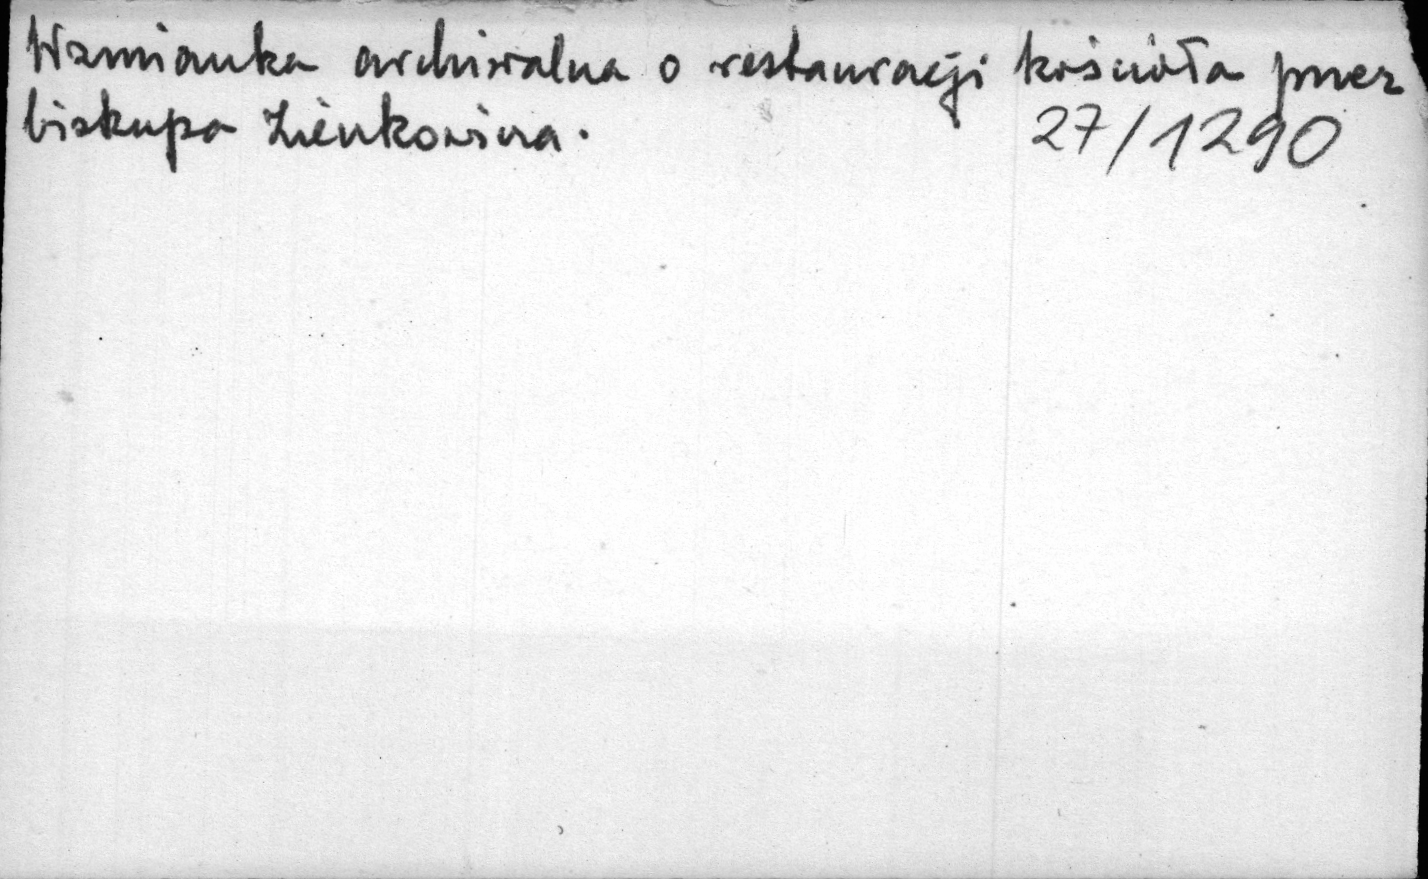 Wzmianka archiwalna o restauracji kościoła przez
biskupa Zienkowicza. 27/1290